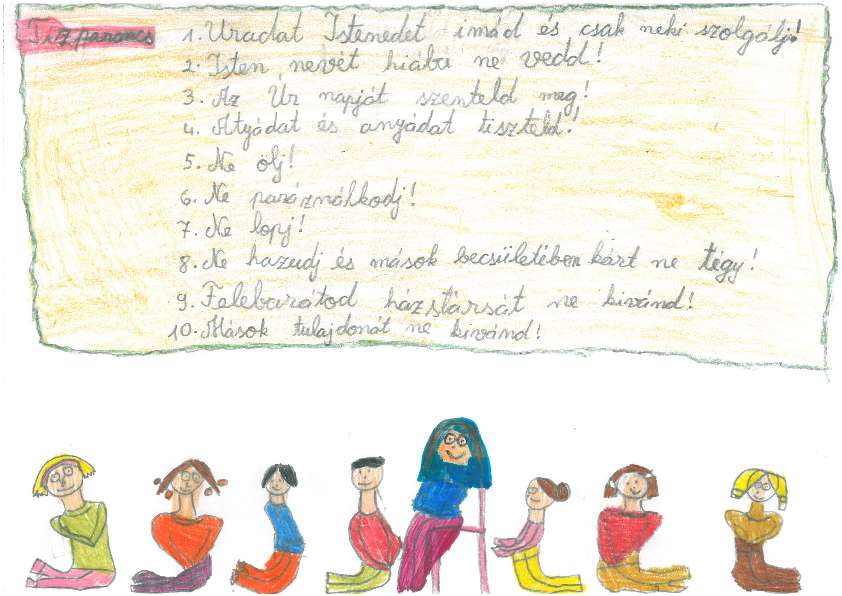 Tíz parancs
1. Uradat Istenedet imád és csak neki szolgálj!
2. Isten nevét hiába ne vedd!
3. Az Úr napját szenteld meg!
4. Atyádat és anyádat tiszteld!
5. Ne ölj!
6. Ne paráználkodj!
7. Ne lopj!
8. Ne hazudj és mások becsületében kárt ne tégy!
9. Felebarátod házstársát ne kivánd!
10. Mások tulajdonát ne kivánd!